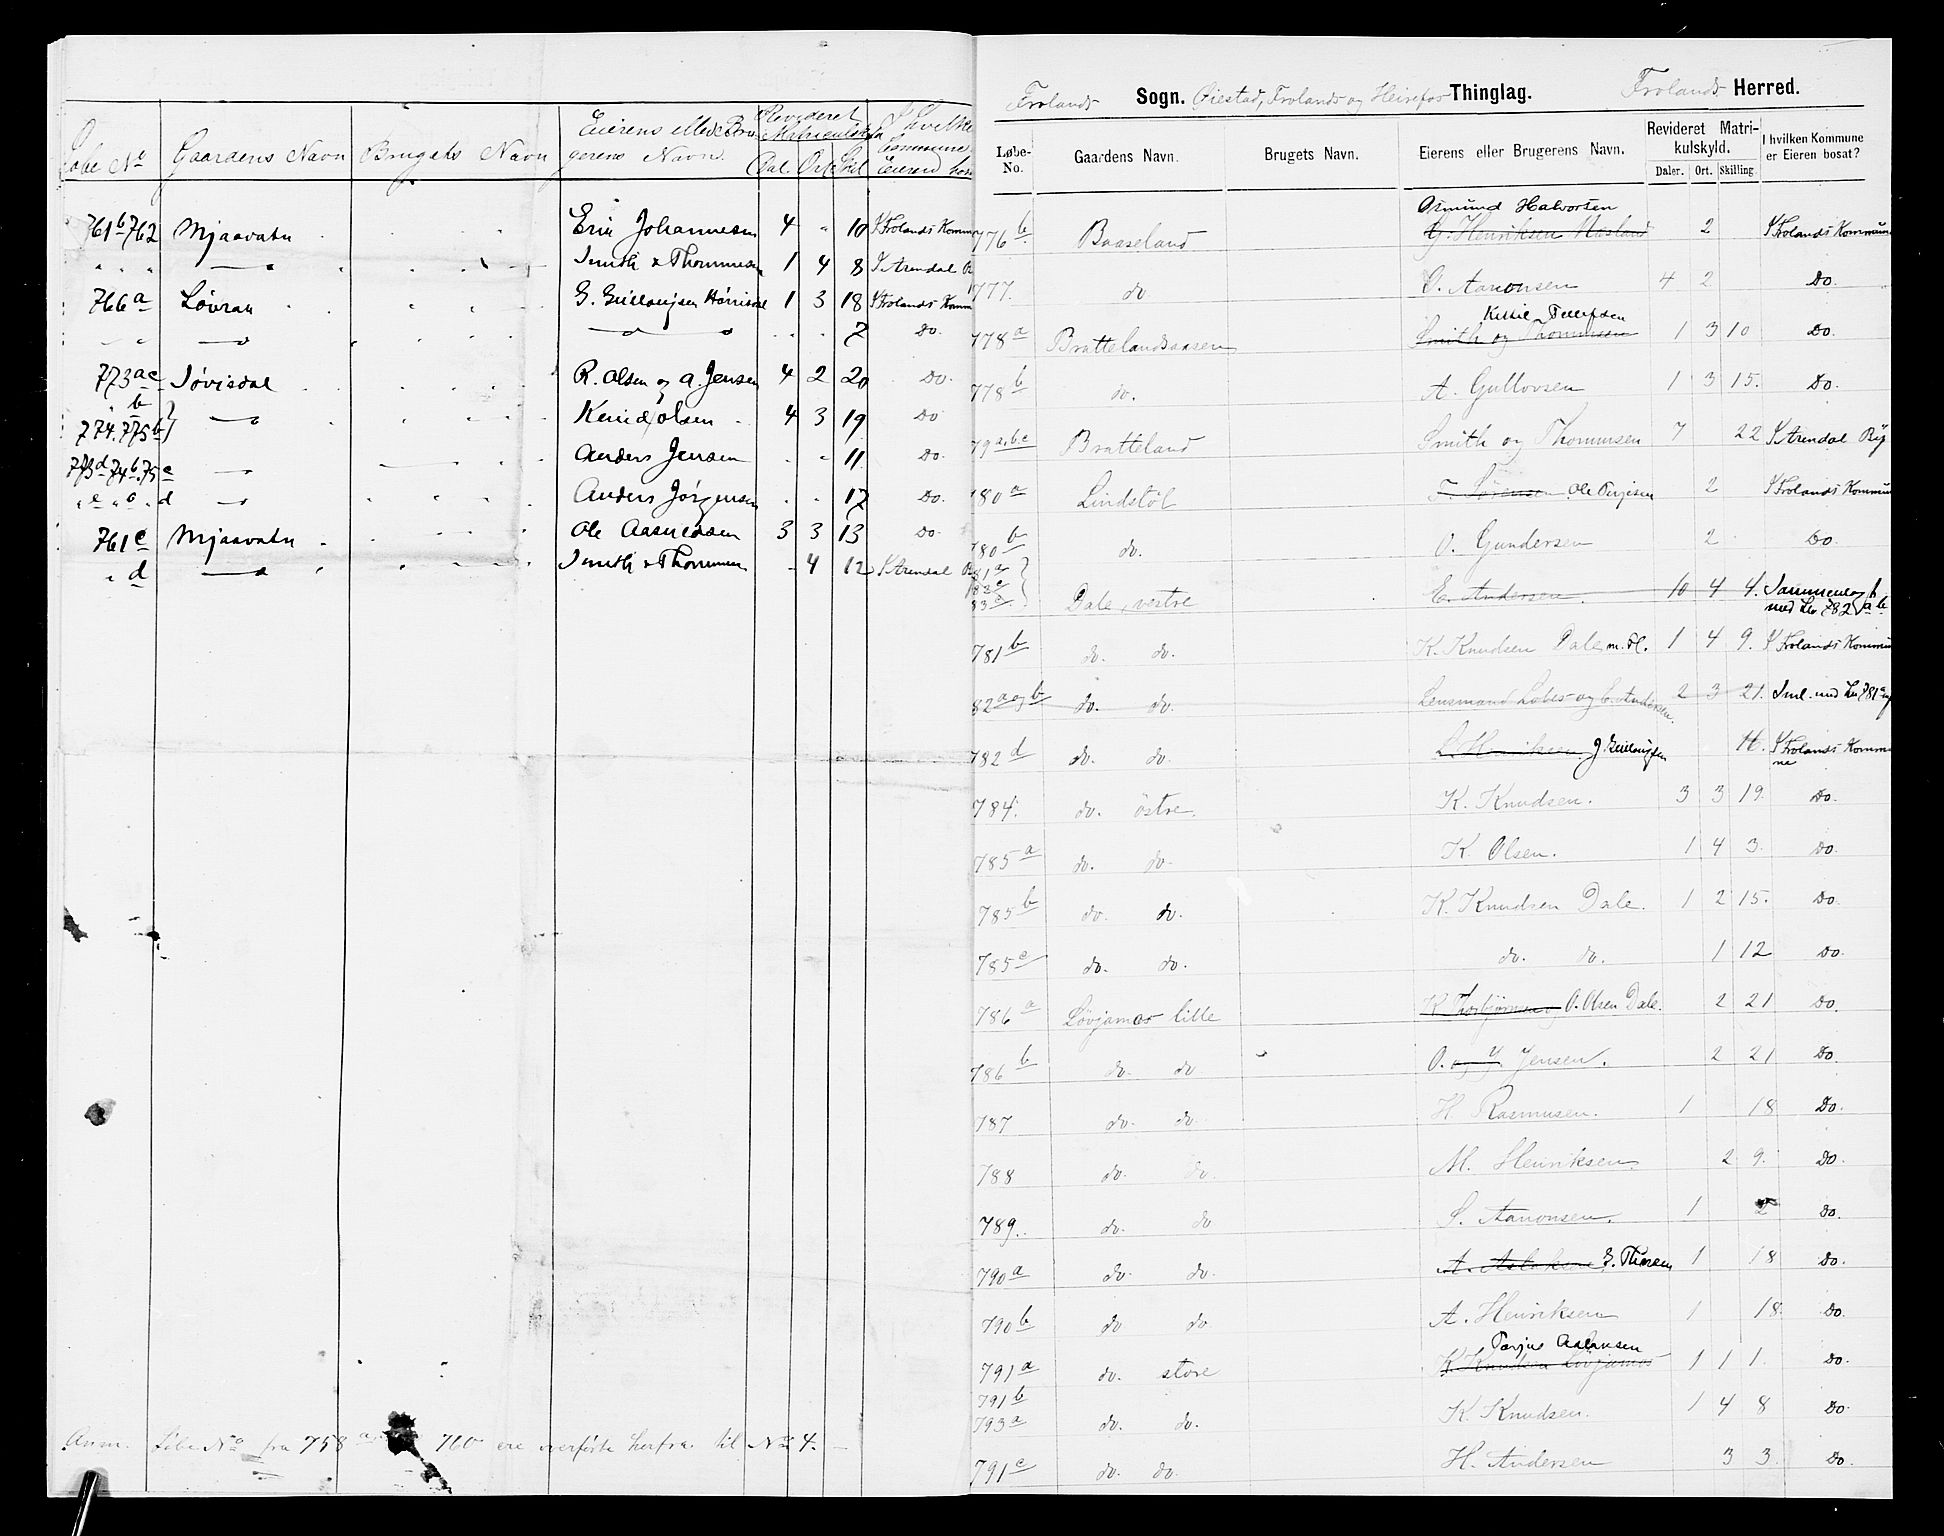 Løbe No Gaardens Navn Brugets Navn Eierens eller Bru- gerens Navn. Revideret Matriculskyld Dal. Ort Skil I hvilke Commune Eieren bos
761b 762 Mjaavatn Erik Johannesen 4 " 10 I Frolands Komm
" " " —"— Smith & Thommesen 1 4 8 I Arendal
766a Løvrak G. Gullougsen 1 3 18 I Frolands Komm
" " —"— —"— " " 7 Do.
773ac Jøvisdal R. Olsen og A. Jensen 4 2 20 Do.
" b 774. 775b —"— Olsen 4 3 19 Do
773d 74b 75c —"— Anders Jensen " " 11 Do.
" e " c " d —"— Anders Jørgensen " " 17 Do.
761c Mjaavatn Ole Aasmedsen 3 3 13 Do.
" d —"— Smith & Thommesen - 4 12 I Arendal
Anm. Løbe No fra 758 760 ere overførte herfra til No 4.
Frolands Sogn. Øiestad, Frolands og Heirefos Thinglag. Frolands Herred.
Løbe-No. Gaardens Navn. Brugets Navn. Eierens eller Brugerens Navn. Revideret Matri-kulskyld. Daler. Ort. Skilling. I hvilken Kommune er Eieren bosat?
Osmund Halvorsen
776b Baaseland G. Henriksen Masland 2 I Frolands Kommun
777. do. O. Aanonsen 4 2 Do.
Kittil Tellefsen
778a Brattelandsaasen Smith og Thommesen 1 3 10 Do.
778b do. A. Gullovsen 1 3 15. Do.
79a,b,c Bratteland Smith og Thommesen 7 22 I Arendal By
780a Lindstöl T. Sørensen Ole Terjesen 2 I Frolands Kommun
780b do. O. Gundersen 2 Do.
81a 82c 83c Dale, vestre E. Andersen. 10 4 4. Sammenlagt med Lno 782 a b
781b do. do. K. Knudsen Dale m. Fl. 1 4 9. I Frolands Kommun
82a og b do. do. Lensmand Lobes og E. Andersen. 2 3 21. Sml. med Lno 781a
782d do. do. L. Henriksen J. Gullougsen 14. I Frolands Komm
ne
784. do. östre. K. Knudsen. 3 3 19. Do.
785a do. do. K. Olsen. 1 4 3. Do.
785b do. do. K. Knudsen Dale. 1 2 15. Do.
785c do. do. do. do. 1 12 Do.
786a Lövjamos lille K. Thorbjörnsen og O. Olsen Dale. 2 21 Do.
786b do. do O. og Y. Jensen. 2 21 Do.
787 do. do. H. Rasmusen. 1 18 Do.
788 do. do. M. Henriksen. 2 9. Do.
789. do. do S. Aanonsen. 1 2 Do.
790a do. do. A. Aslaksen 1 18 Do.
790b do do A. Henriksen 1 18. Do.
Terjus Aslaksen
791a do. store K. Knudsen Lövjamos 1 1 1. Do.
791b
793a do. do. K. Knudsen. 1 4 8 Do.
791c do. do. H. Andersen 3 3. Do.